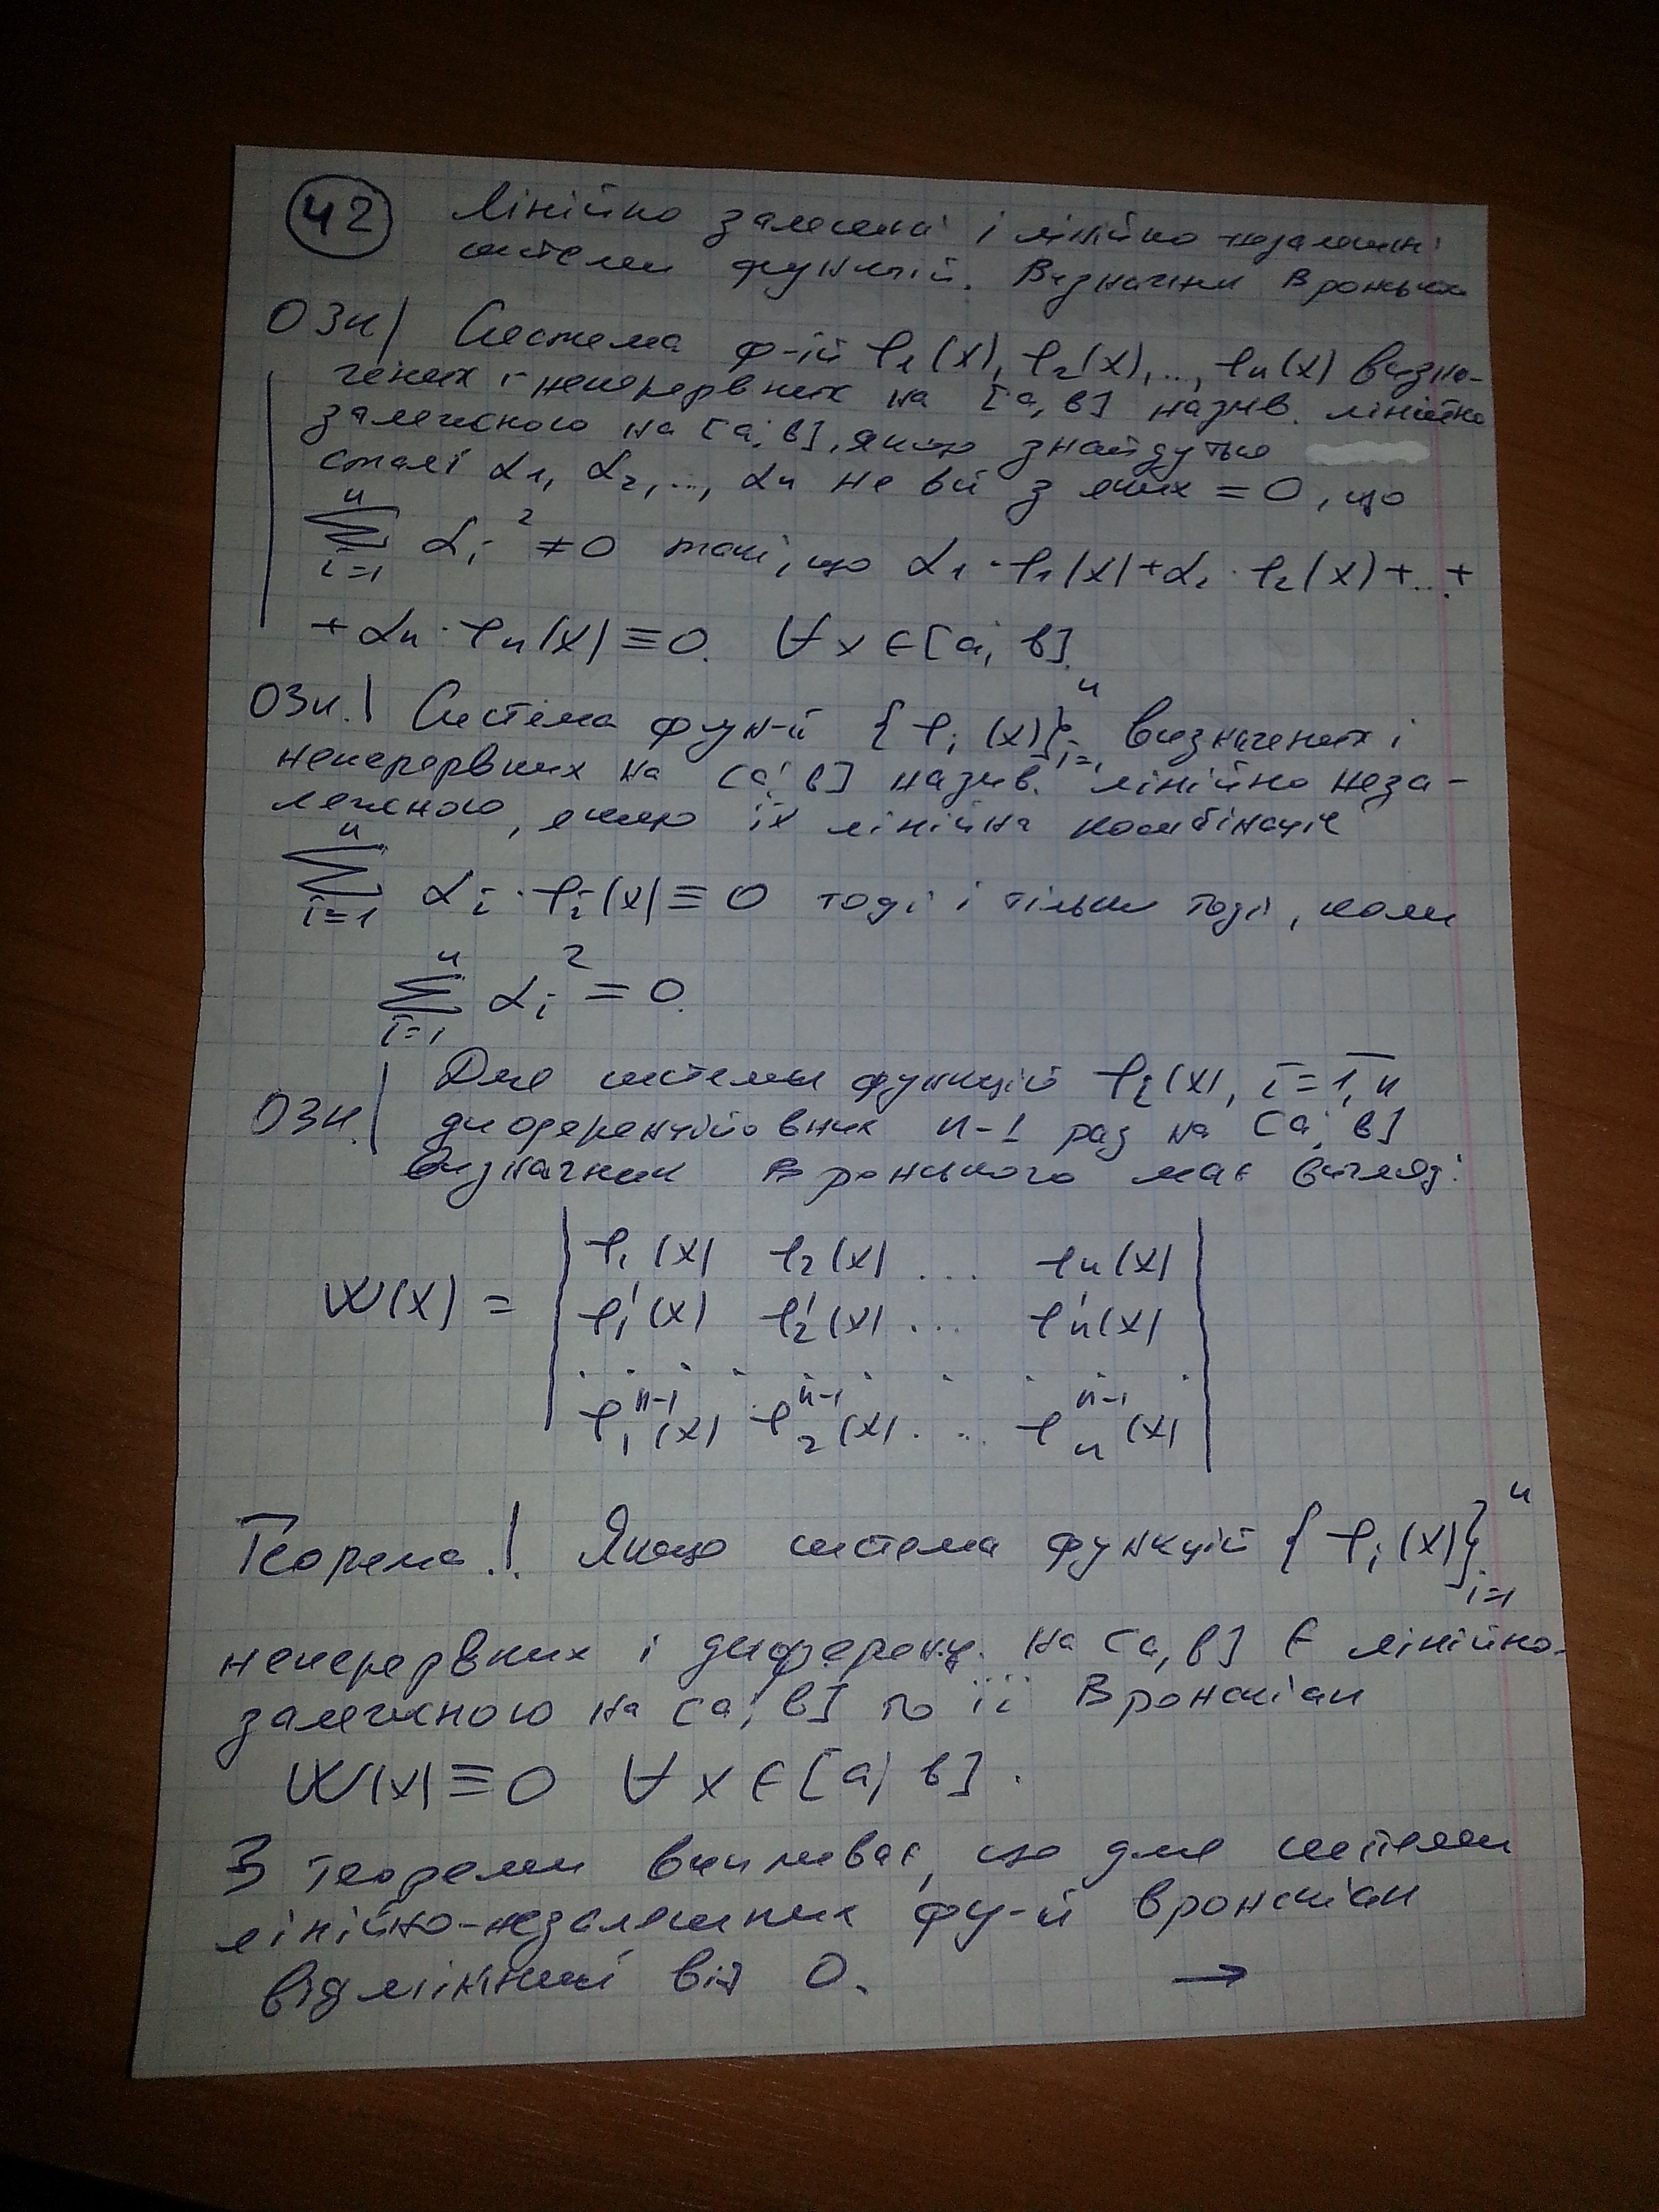 42 Лінійно залежні і лінійно незалежні
системи функцій. Визначник Вронського
Озн| Система ф-ій φ₁(x), φ₂(x),..., φₙ(x) визна-
чених і неперервних на [a, b] назив. лінійно
залежною на [a; b], якщо знайдуться
сталі α₁, α₂,..., αₙ не всі з яких = 0, що
∑ᵢ₌₁ⁿ αᵢ² ≠ 0 такі, що α₁·φ₁(x)+α₂·φ₂(x)+...+
+αₙ·φₙ(x)≡0. ∀x∈[a; b].
Озн.| Система фун-й {φᵢ(x)}ᵢ₌₁ⁿ визначених і
неперервних на [a; b] назив. лінійно неза-
лежною, якщо їх лінійна комбінація
∑ᵢ₌₁ⁿ αᵢ·φᵢ(x)≡0 тоді і тільки тоді, коли
∑ᵢ₌₁ⁿ αᵢ² = 0.
Для системи функцій φᵢ(x), i=1,n
Озн.| диференційовних n-1 раз на [a; b]
визначник Вронського має вигляд:
φ₁(x) φ₂(x) ... φₙ(x)
W(x) = φ₁'(x) φ₂'(x) ... φₙ'(x)
. . . . . . . . .
φ₁ⁿ⁻¹(x) φ₂ⁿ⁻¹(x) ... φₙⁿ⁻¹(x)
Теорема.| Якщо система функцій {φᵢ(x)}ᵢ₌₁ⁿ
неперервних і диференц. на [a, b] є лінійно-
залежною на [a; b] то її Вронскіан
W(x)≡0 ∀x∈[a; b].
З теореми випливає, що для системи
лінійно-незалежних фу-й вронскіан
відмінний від 0. →